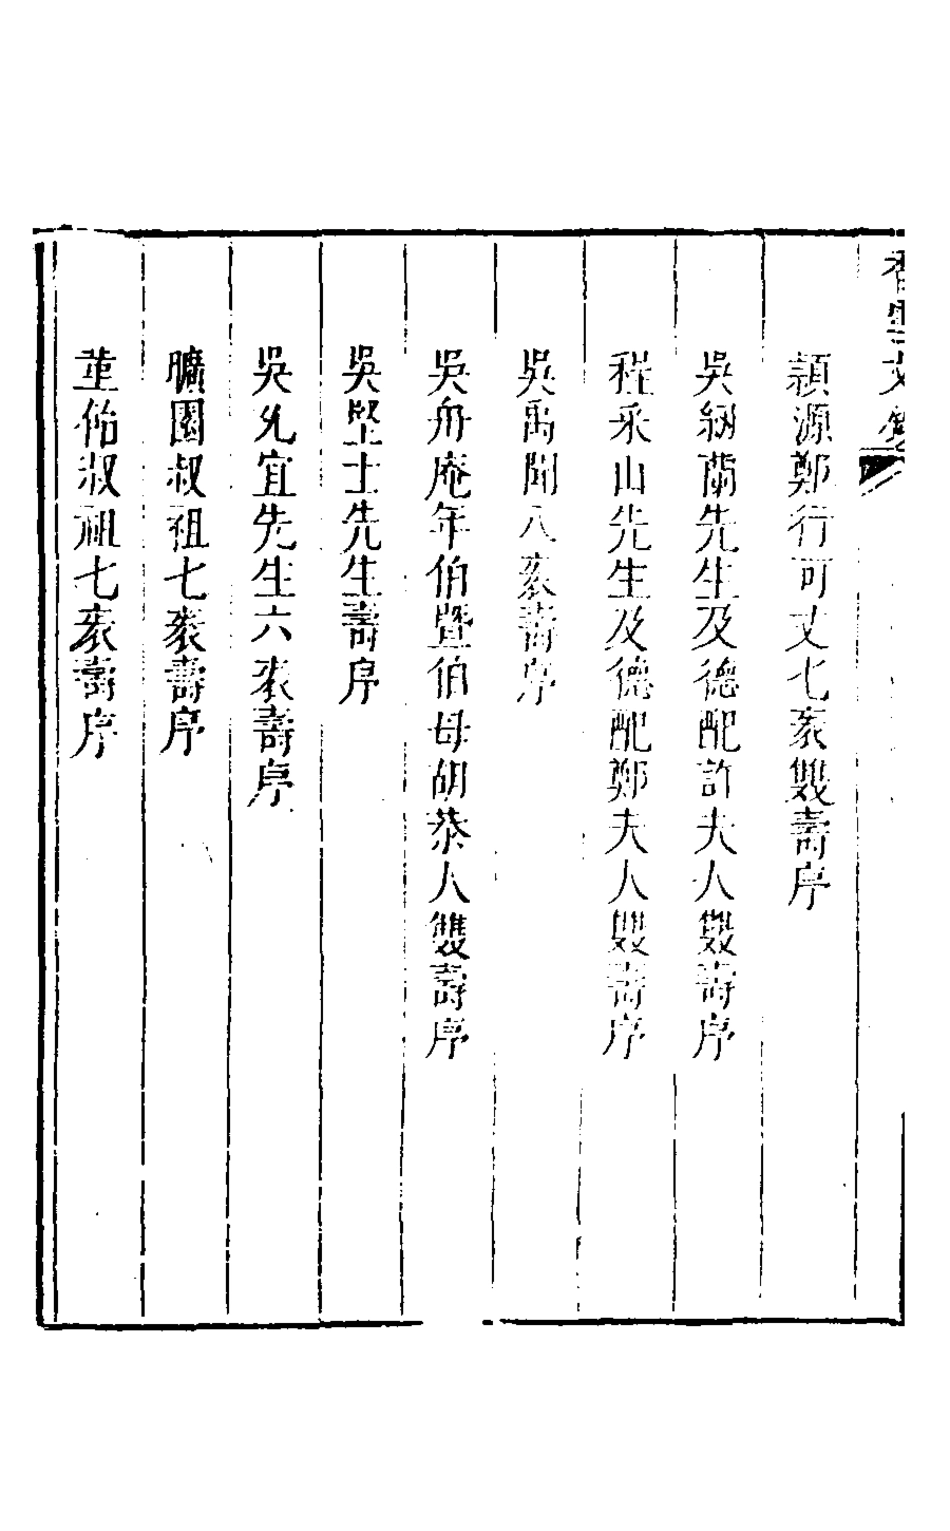 香雪文鈔
頴源鄭行可丈七袠雙壽序
吳紉蘭先生及德配許夫人雙壽序
程采山先生及德配鄭夫人雙壽序
吳禹聞八袠壽序
吳舟庵年伯暨伯母胡恭人雙壽序
吳堅士先生壽序
吳允宜先生六袠壽序
曠園叔祖七袠壽序
菫佁叔祖七袠壽序